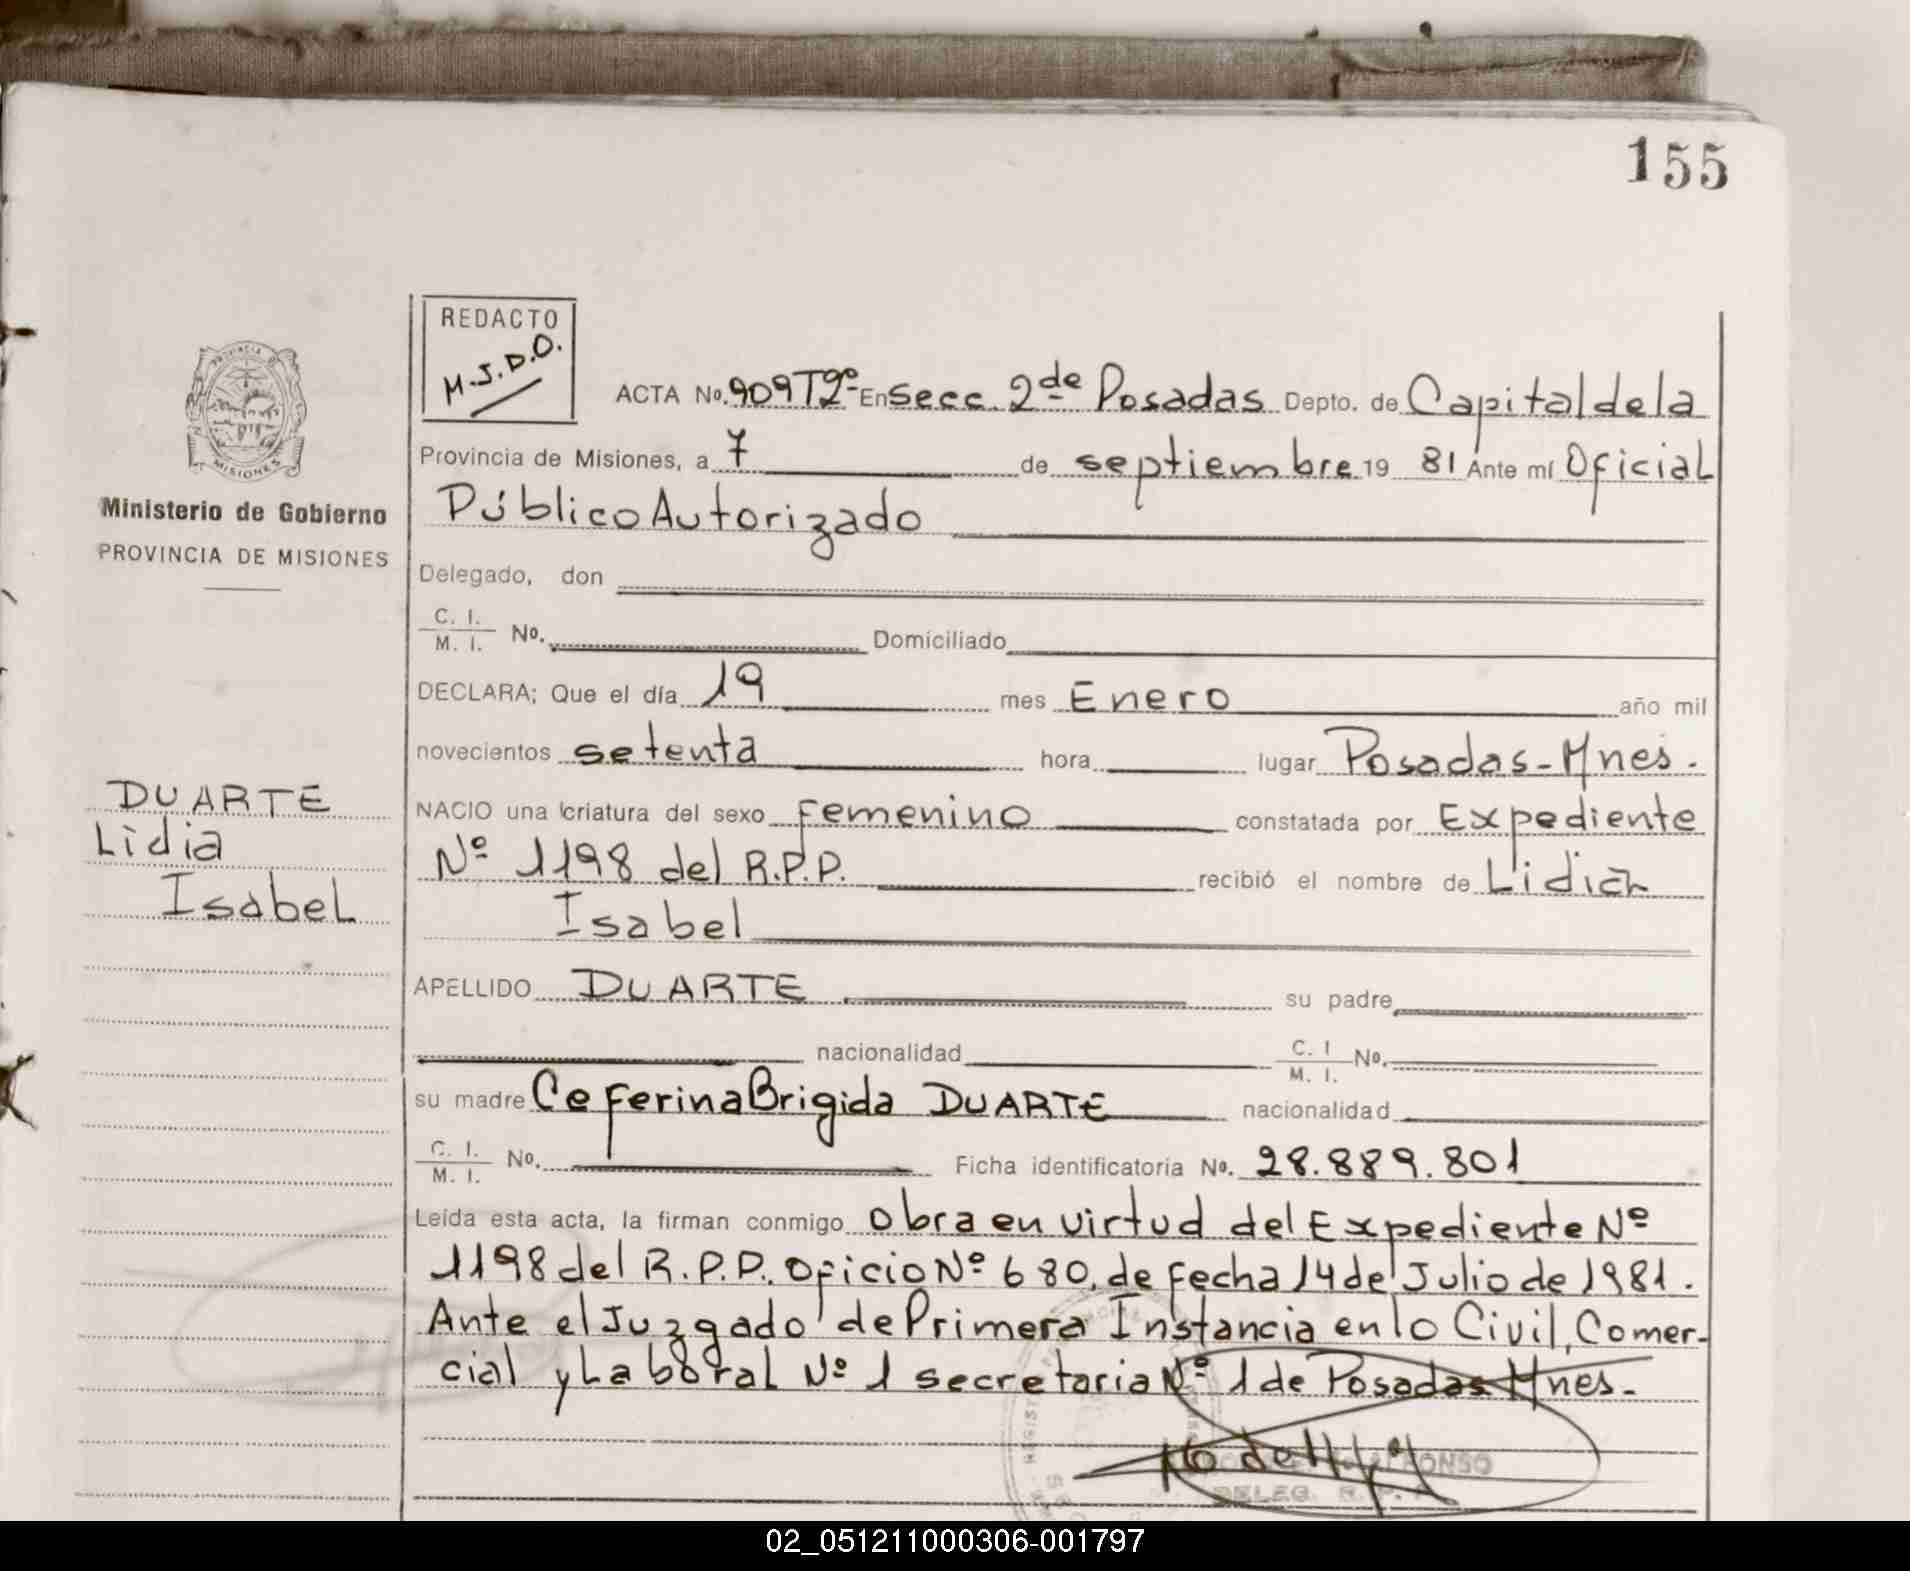 155
REDACTO
M.J.D.O.
ACTA No. 909 Tº2º En Secc. 2da de Posadas Depto. de Capital de la
Provincia de Misiones, a 7 de septiembre 19 81 Ante mí Oficial
Público Autorizado
Delegado, don
C. I. M. I. No. Domiciliado
DECLARA; Que el día 19 mes Enero año mil
novecientos setenta hora lugar Posadas-Mnes.
NACIO una criatura del sexo femenino constatada por Expediente
Nº 1198 del R.P.P. recibió el nombre de Lidia
Isabel
APELLIDO DUARTE su padre
nacionalidad C. I M. I. No.
su madre Ceferina Brigida DUARTE nacionalidad
C. I. M. I. No. Ficha identificatoria No. 28.889.801
Leída esta acta, la firman conmigo Obra en virtud del Expediente Nº
1198 del R.P.P. Oficio Nº 680, de fecha 14 de Julio de 1981.
Ante el Juzgado de Primera Instancia en lo Civil, Comer-
cial y Laboral Nº 1 secretaria Nº 1 de Posadas Mnes.-
DELEG. R. P.
PROVINCIA DE
MISIONES
Ministerio de Gobierno
PROVINCIA DE MISIONES
DUARTE
Lidia
Isabel
02_051211000306-001797